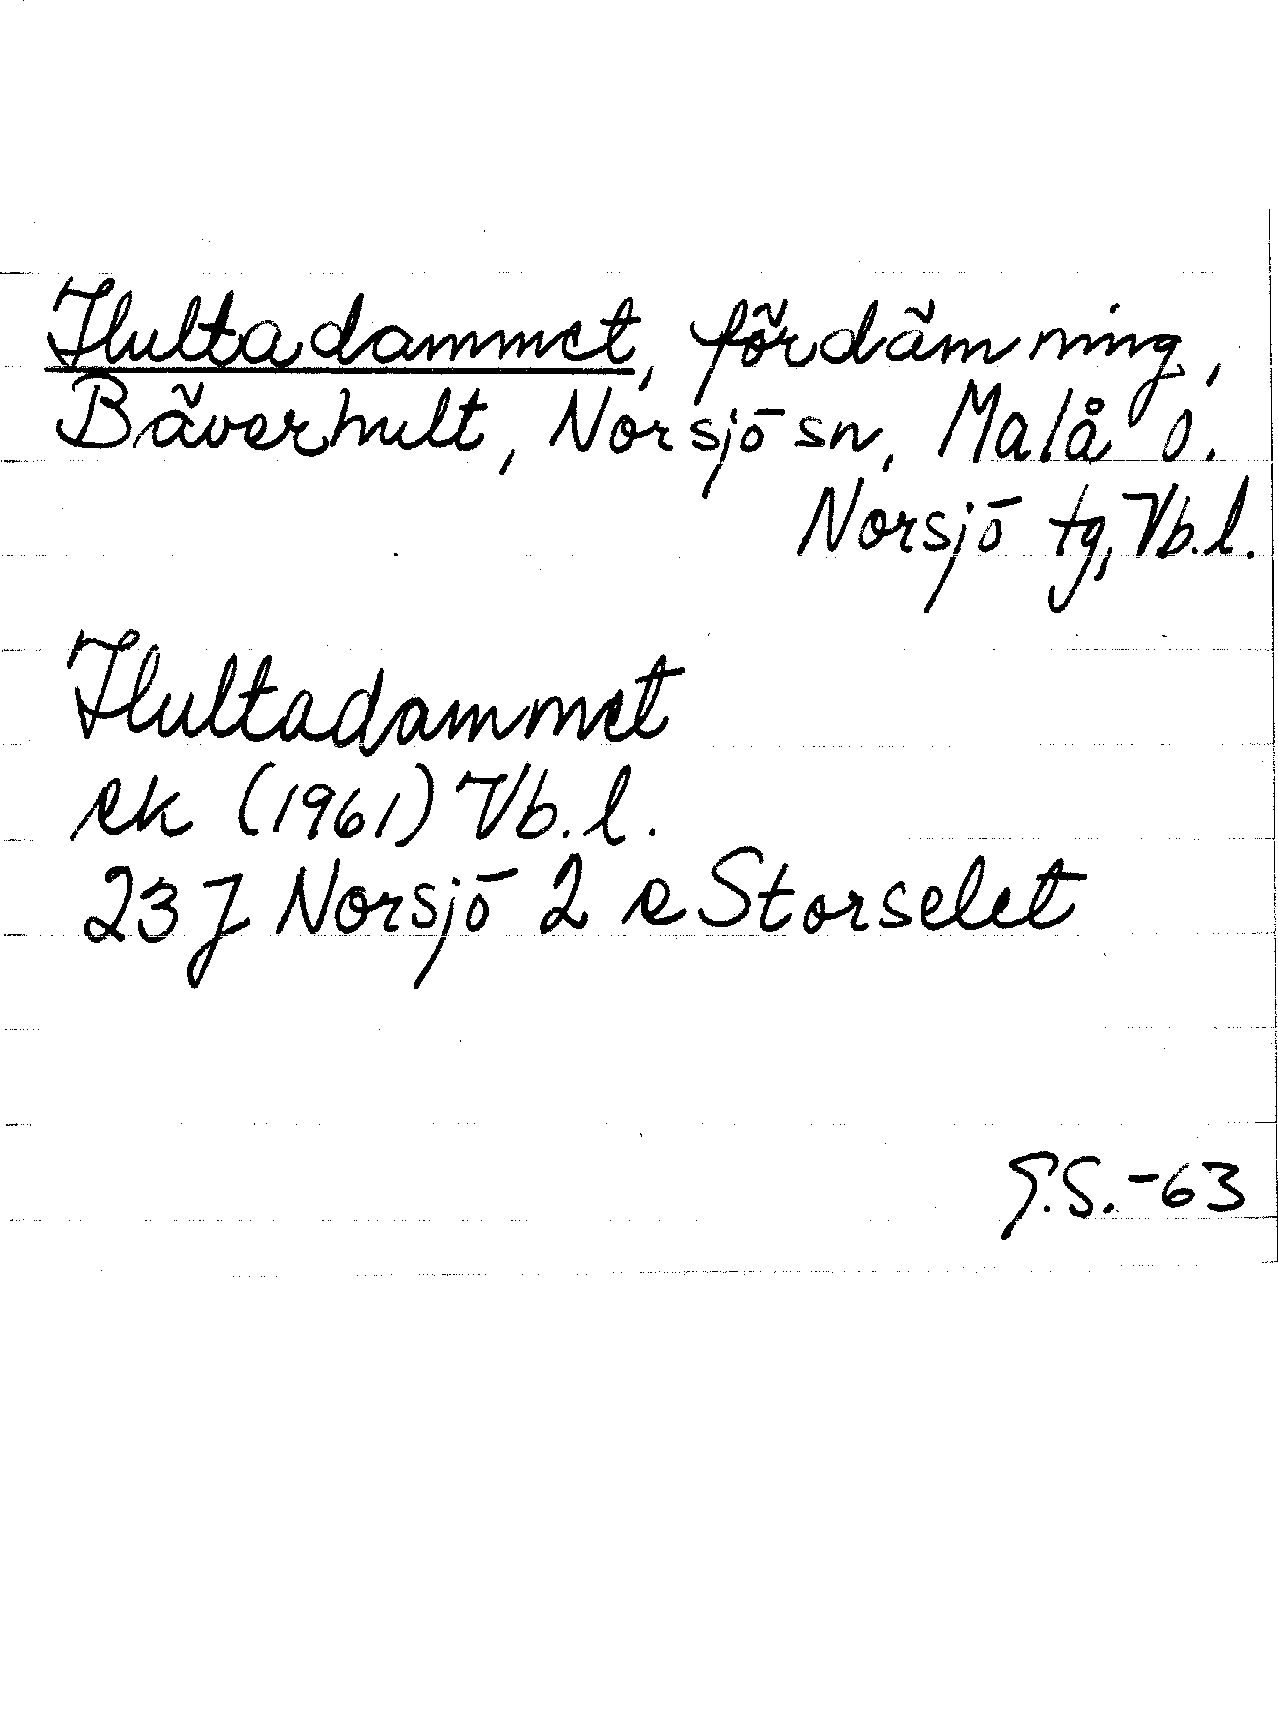 Hultadammet, fördämning,
Bäverhult, Norsjö sn, Malå o.
Norsjö tg, Vb.l.
Hultadammet
ek (1961) Vb.l.
23J Norsjö 2 e Storselet
G.S.-63